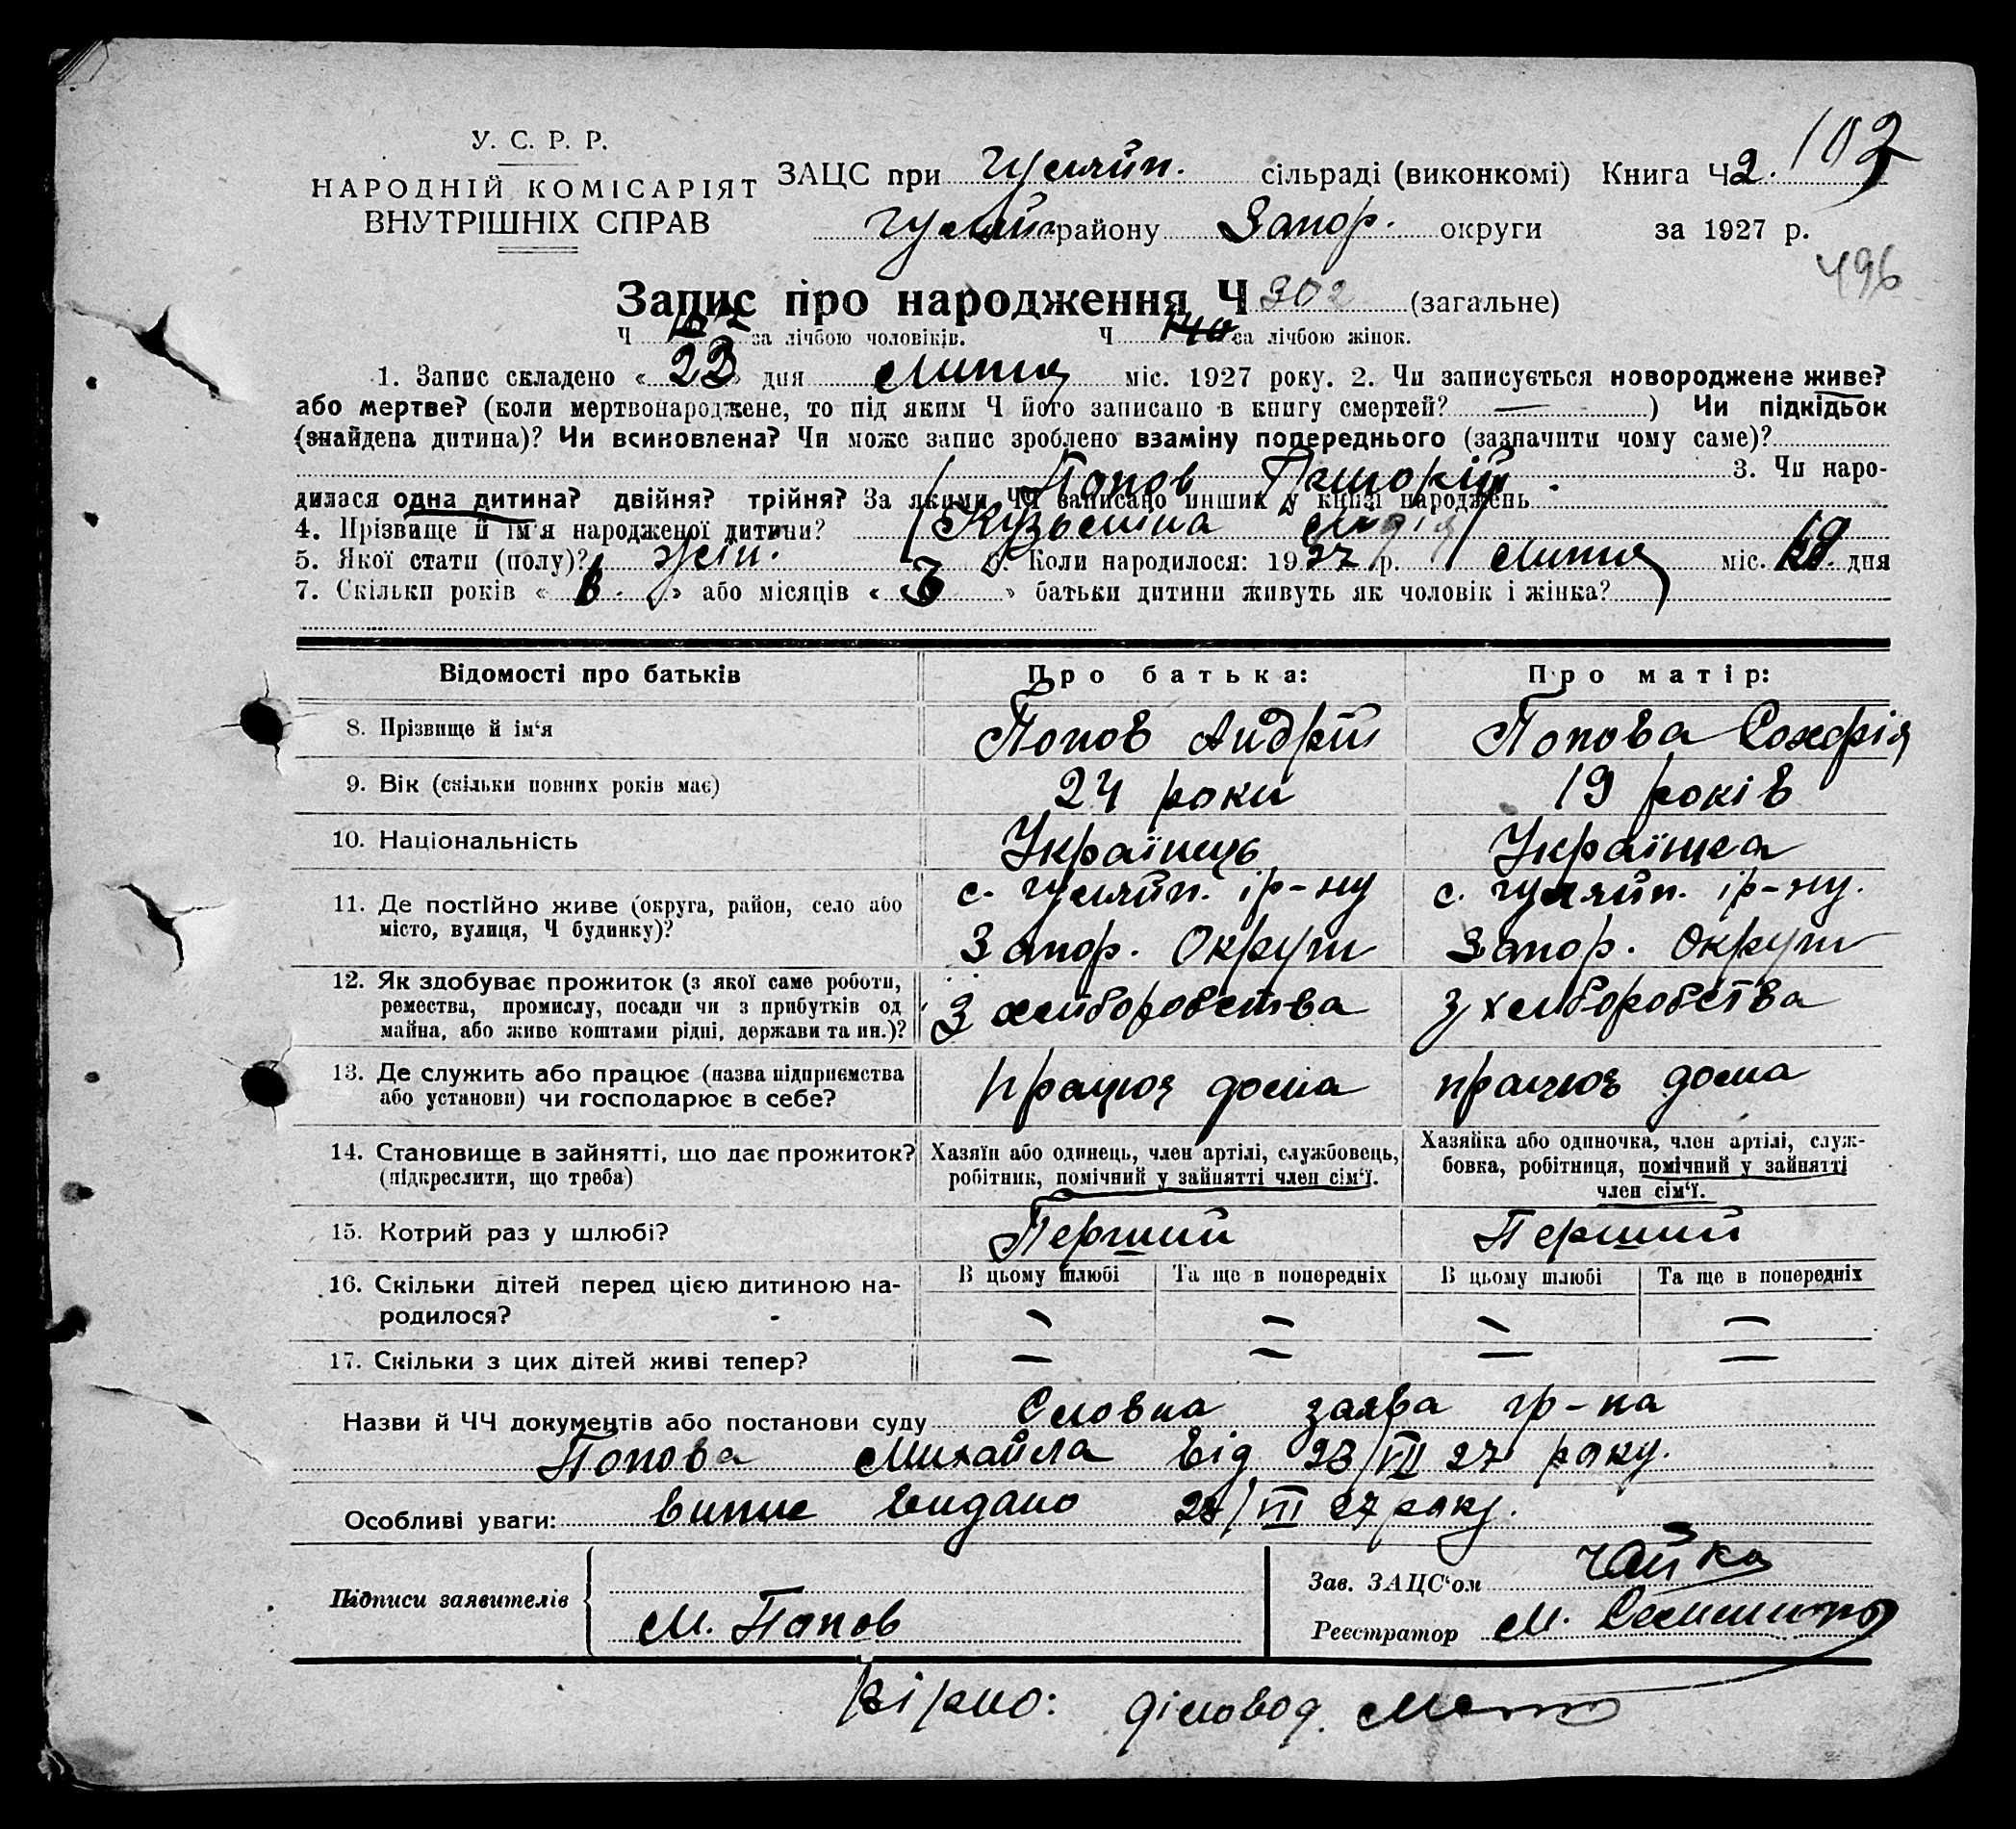 У. С. Р. Р.
НАРОДНІЙ КОМІСАРІЯТ
ВНУТРІШНІХ СПРАВ
102
ЗАЦС при Гуляйп. сільраді (виконкомі) Книга Ч 2.
Гуляйп району Запор. округи за 1927 р.
496
Запис про народження Ч 302 (загальне)
Ч за лічбою чоловіків. Ч 140 за лічбою жінок.
1. Запис складено « 23 » дня липня міс. 1927 року. 2. Чи записується новороджене живе?
або мертве? (коли мертвонароджене, то під яким Ч його записано в книгу смертей? — ) Чи підкідьок
(знайдена дитина)? Чи всиновлена? Чи може запис зроблено взаміну попереднього (зазначити чому саме)?
Попов 3. Чи наро-
дилася одна дитина? двійня? трійня? За якими ЧЧ записано инших у книзі народжень
4. Прізвище й ім'я народженої дитини? Кузьміна Лідія
5. Якої стати (полу)? жін. 6. Коли народилося: 1927 р. липня міс. дня
7. Скільки років « » або місяців « » батьки дитини живуть як чоловік і жінка?
Відомості про батьків Про батька: Про матір:
8. Прізвище й ім'я Попов Андрій Попова Сохфія
9. Вік (скільки повних років має) 24 роки 19 років
10. Національність Українець Українка
11. Де постійно живе (округа, район, село або с. Гуляйп. ір-ну с. Гуляйп. ір-ну.
місто, вулиця, Ч будинку)? Запор. Округи Запор. Округи
12. Як здобуває прожиток (з якої саме роботи,
ремества, промислу, посади чи з прибутків од З хліборобства з хліборобства
майна, або живе коштами рідні, держави та ин.)?
13. Де служить або працює (назва підприємства працює дома працює дома
або установи) чи господарює в себе?
14. Становище в зайнятті, що дає прожиток? Хазяїн або одинець, член артілі, службовець, Хазяйка або одиночка, член артілі, служ-
(підкреслити, що треба) робітник, помічний у зайнятті член сім'ї. бовка, робітниця, помічний у зайнятті
член сім'ї.
15. Котрий раз у шлюбі? Перший Перший
16. Скільки дітей перед цією дитиною на- В цьому шлюбі Та ще в попередніх В цьому шлюбі Та ще в попередніх
родилося? — — — —
17. Скільки з цих дітей живі тепер? — — — —
Назви й ЧЧ документів або постанови суду Словна заява гр-на
Попова Михайла від 23/VII 27 року.
Особливі уваги: випис видано 23/VII 27 року.
Підписи заявителів М. Попов
Зав. ЗАЦС'ом Чайка
Реєстратор М.
Вірно: діловод.